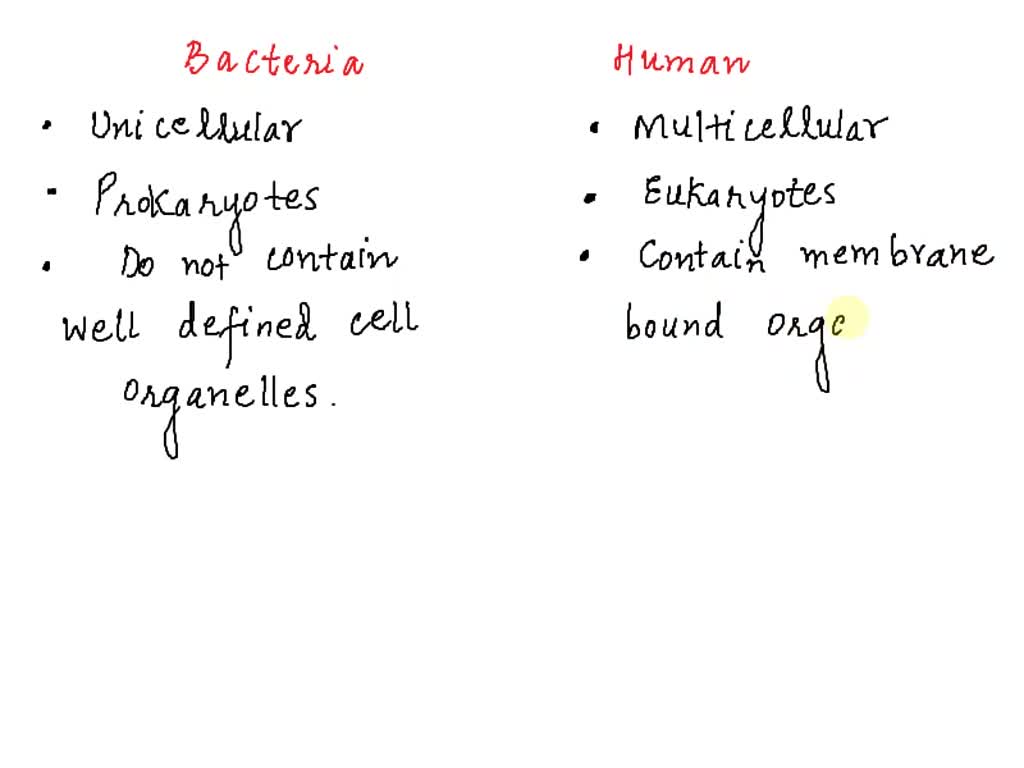 Bacteria
• Unicellular
• Prokaryotes
• Do not contain
well defined cell
organelles.
Human
• Multicellular
• Eukaryotes
• Contain membrane
bound orgc